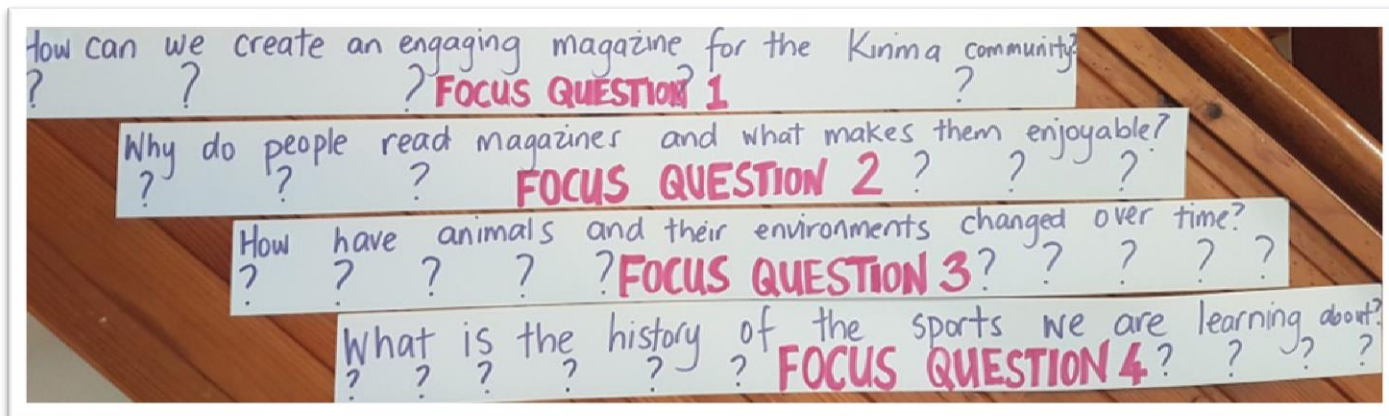 How can we create an engaging magazine for the Kinma community?
? ? ? FOCUS QUESTION 1 ? ?
Why do people read magazines and what makes them enjoyable?
? ? ? FOCUS QUESTION 2 ? ? ?
How have animals and their environments changed over time?
? ? ? ? ? FOCUS QUESTION 3 ? ? ? ? ?
What is the history of the sports we are learning about?
? ? ? ? ? ? FOCUS QUESTION 4 ? ? ? ?